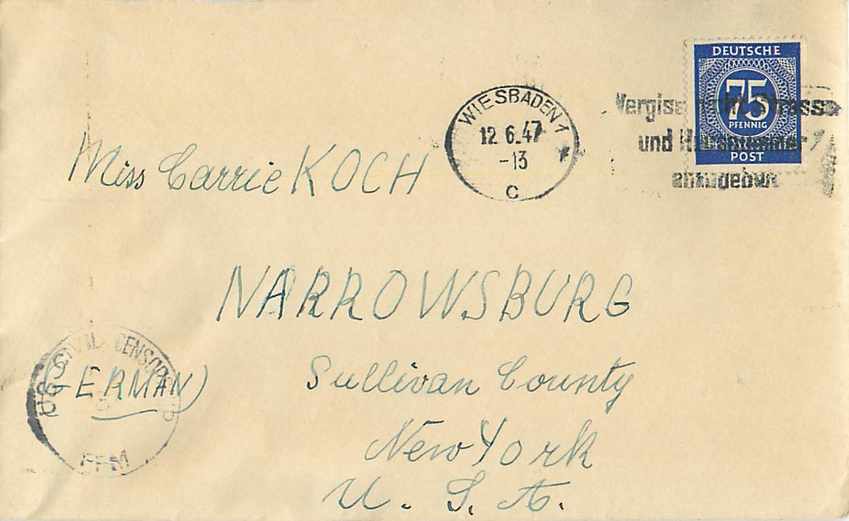 DEUTSCHE
75
PFENNIG
POST
WIESBADEN 1
12.6.47
-13
c
Vergiss
und
anzugeben
Miss Carrie KOCH
NARROWSBURG
Sullivan County
New York
U. S. A.
(GERMAN)
U.S. CIVIL CENSORSHIP
FFM